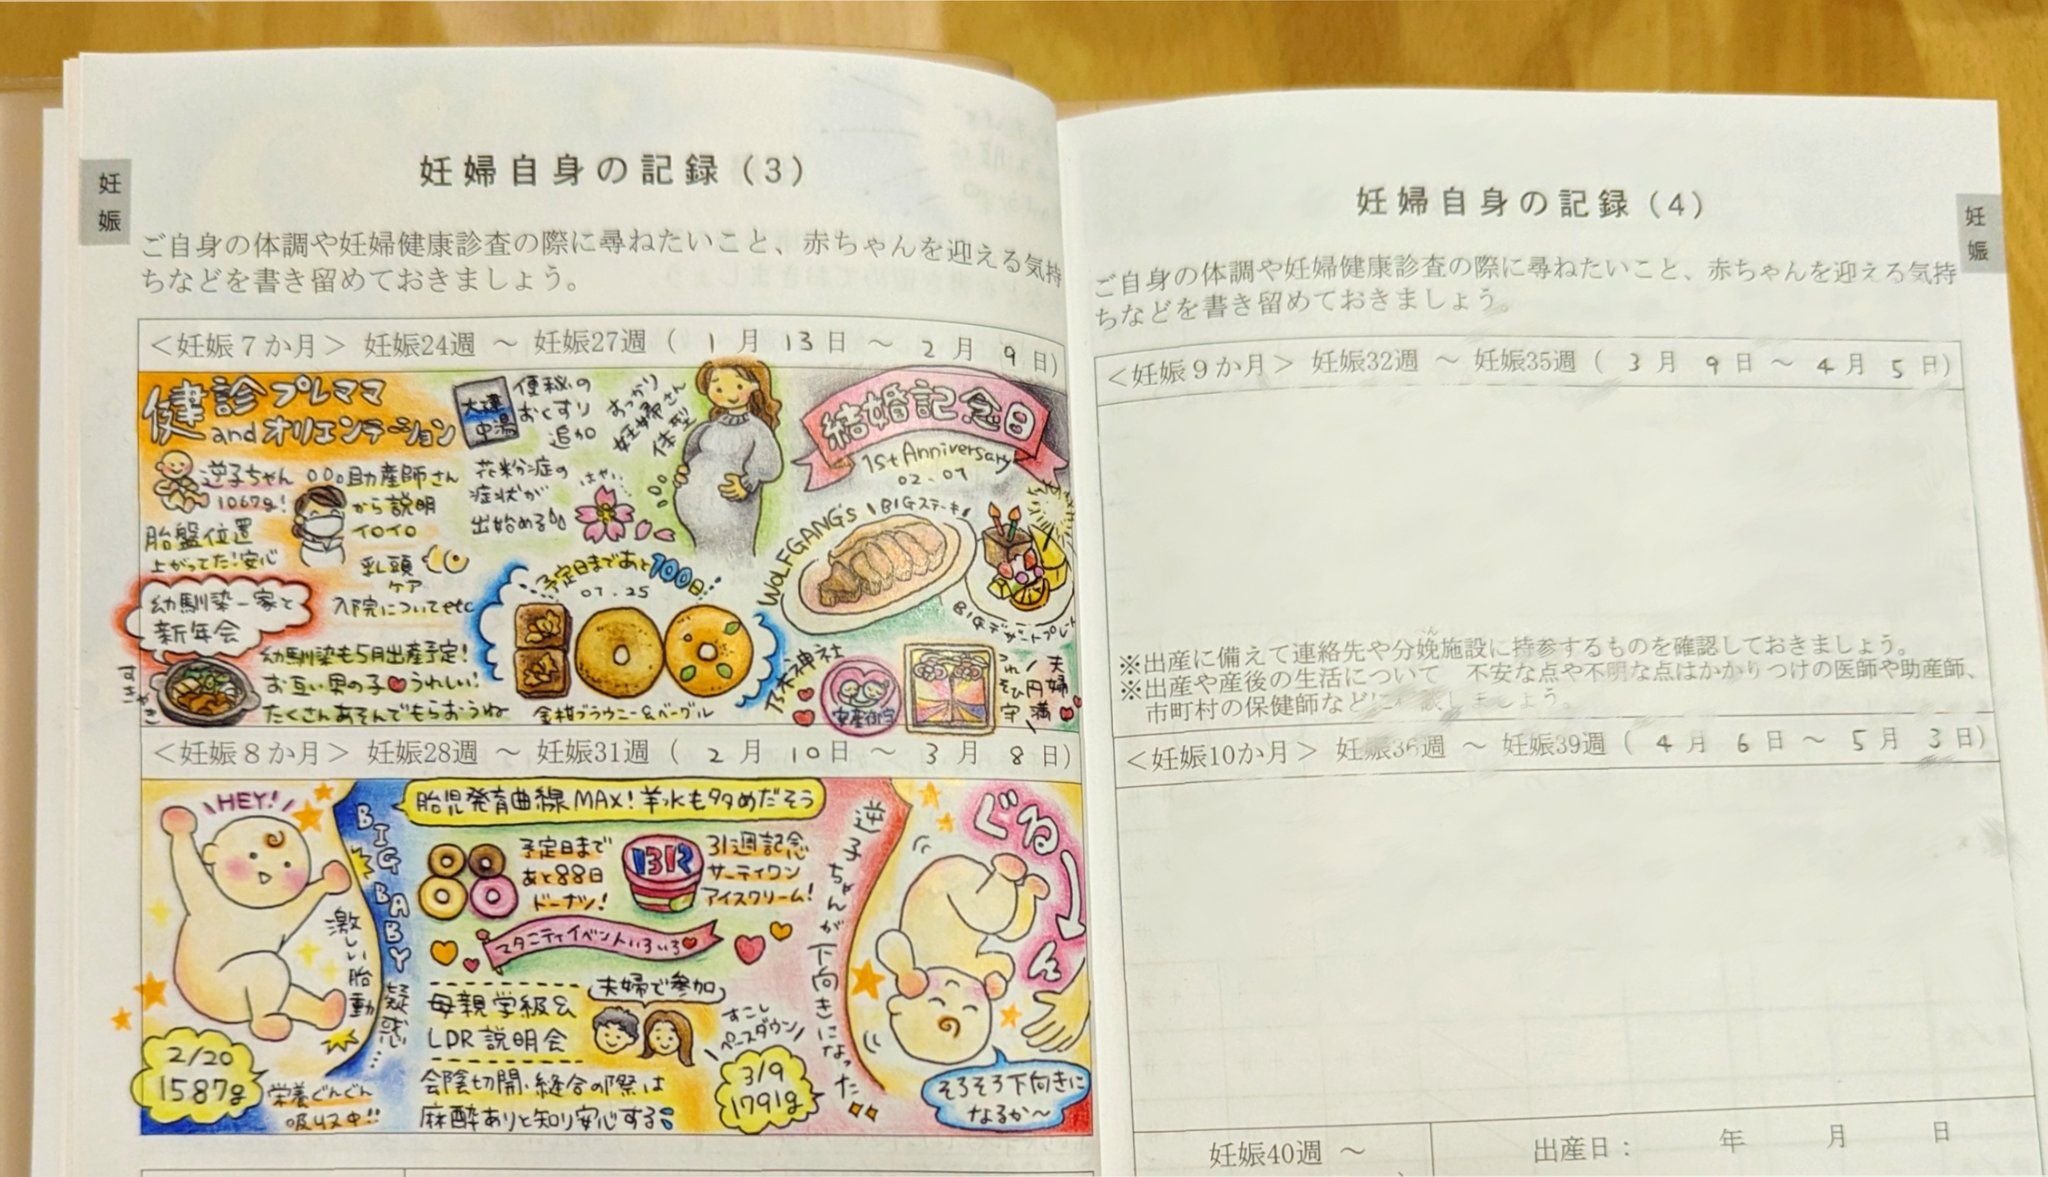 妊娠
妊婦自身の記録（3）
ご自身の体調や妊婦健康診査の際に尋ねたいこと、赤ちゃんを迎える気持
ちなどを書き留めておきましょう。
＜妊娠７か月＞ 妊娠24週 ～ 妊娠27週（ 1 月 13 日 ～ 2 月 9 日）
健診 プレママ
and オリエンテーション
逆子ちゃん
1067g!
胎盤位置
上がってた!安心
助産師さん
から説明
イロイロ
乳頭
ケア
入院についてetc
大建
中湯
便秘の
おくすり
追加
花粉症の
症状が
出始める
はやい…
すっかり
妊婦さん
体型
結婚記念日
1st Anniversary
02.07
WOLFGANG'S
BIGステーキ
BIGデザートプレート
幼馴染一家と
新年会
すきやき
幼馴染も5月出産予定!
お互い男の子♥うれしい!
たくさんあそんでもらおうね
予定日まであと100日!
01.25
金柑ブラウニー&ベーグル
乃木神社
安産御守
夫婦
円満
つれそひ守
＜妊娠８か月＞ 妊娠28週 ～ 妊娠31週（ 2 月 10 日 ～ 3 月 8 日）
HEY!
激しい胎動
BIG BABY疑惑…
2/20
1587g
栄養ぐんぐん
吸収中!!
胎児発育曲線MAX!羊水も多めだそう
予定日まで
あと88日
ドーナツ!
31週記念
サーティワン
アイスクリーム!
マタニティイベントいろいろ
夫婦で参加
母親学級&
LDR説明会
すこし
ペースダウン
会陰切開、縫合の際は
麻酔ありと知り安心する
3/9
1791g
逆子ちゃんが下向きになった
ぐるん
そろそろ下向きに
なるか～
妊娠
妊婦自身の記録（4）
ご自身の体調や妊婦健康診査の際に尋ねたいこと、赤ちゃんを迎える気持
ちなどを書き留めておきましょう。
＜妊娠９か月＞ 妊娠32週 ～ 妊娠35週（ 3 月 9 日 ～ 4 月 5 日）
※出産に備えて連絡先や分娩施設に持参するものを確認しておきましょう。
※出産や産後の生活について 不安な点や不明な点はかかりつけの医師や助産師、
市町村の保健師などに 談しましょう。
＜妊娠10か月＞ 妊娠36週 ～ 妊娠39週（ 4 月 6 日 ～ 5 月 3 日）
妊娠40週 ～
出産日： 年 月 日